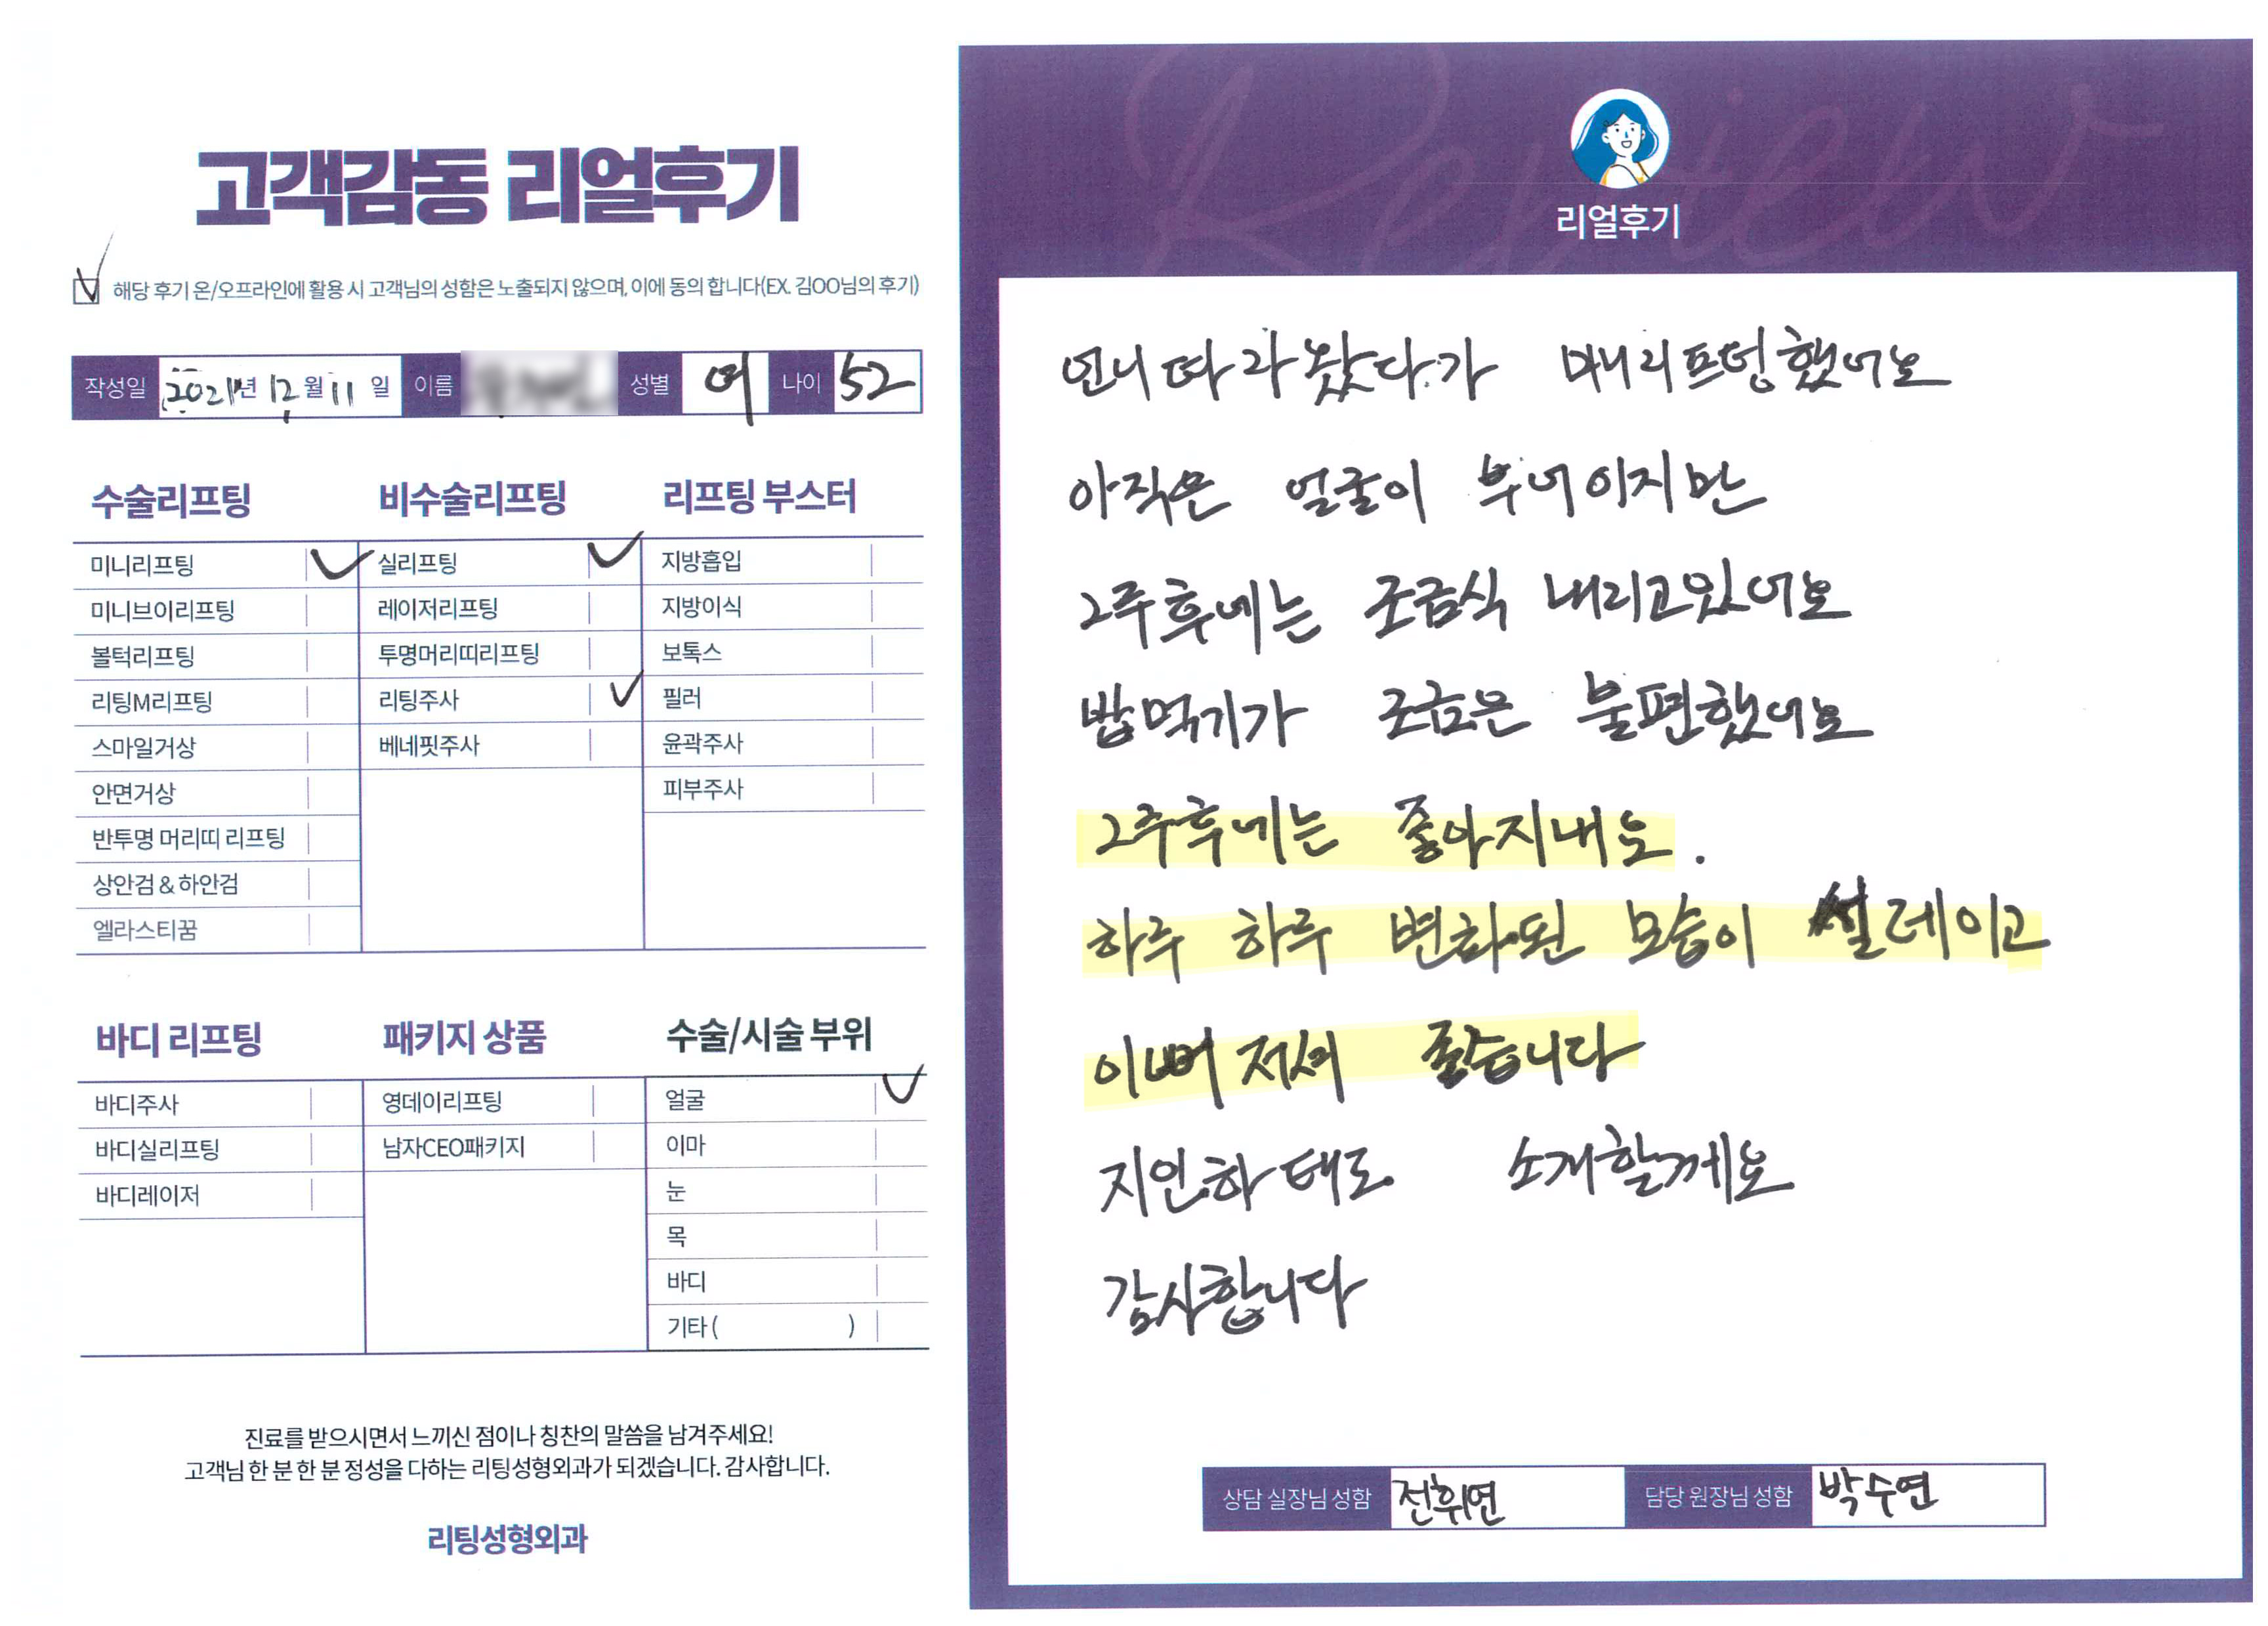 고객감동 리얼후기
해당 후기 온/오프라인에 활용 시 고객님의 성함은 노출되지 않으며, 이에 동의 합니다(EX. 김OO님의 후기)
작성일 2021년 12월 11일 이름 성별 여 나이 52
수술리프팅
미니리프팅
미니브이리프팅
볼턱리프팅
리팅M리프팅
스마일거상
안면거상
반투명 머리띠 리프팅
상안검 & 하안검
엘라스티꿈
비수술리프팅
실리프팅
레이저리프팅
투명머리띠리프팅
리팅주사
베네핏주사
리프팅 부스터
지방흡입
지방이식
보톡스
필러
윤곽주사
피부주사
바디 리프팅
바디주사
바디실리프팅
바디레이저
패키지 상품
영데이리프팅
남자CEO패키지
수술/시술 부위
얼굴
이마
눈
목
바디
기타 ( )
진료를 받으시면서 느끼신 점이나 칭찬의 말씀을 남겨주세요!
고객님 한 분 한 분 정성을 다하는 리팅성형외과가 되겠습니다. 감사합니다.
리팅성형외과
Review
리얼후기
언니 따라 왔다가 미니리프팅했어요
아직은 얼굴이 부어이지만
2주후에는 조금식 내리고있어요
밥먹기가 조금은 불편했어요
2주후에는 좋아지내요.
하루 하루 변화된 모습이 썰레이고
이뻐저셔 좋습니다
지인하태도 소개할께요
감사합니다
상담 실장님 성함 전휘연 담당 원장님 성함 박수연